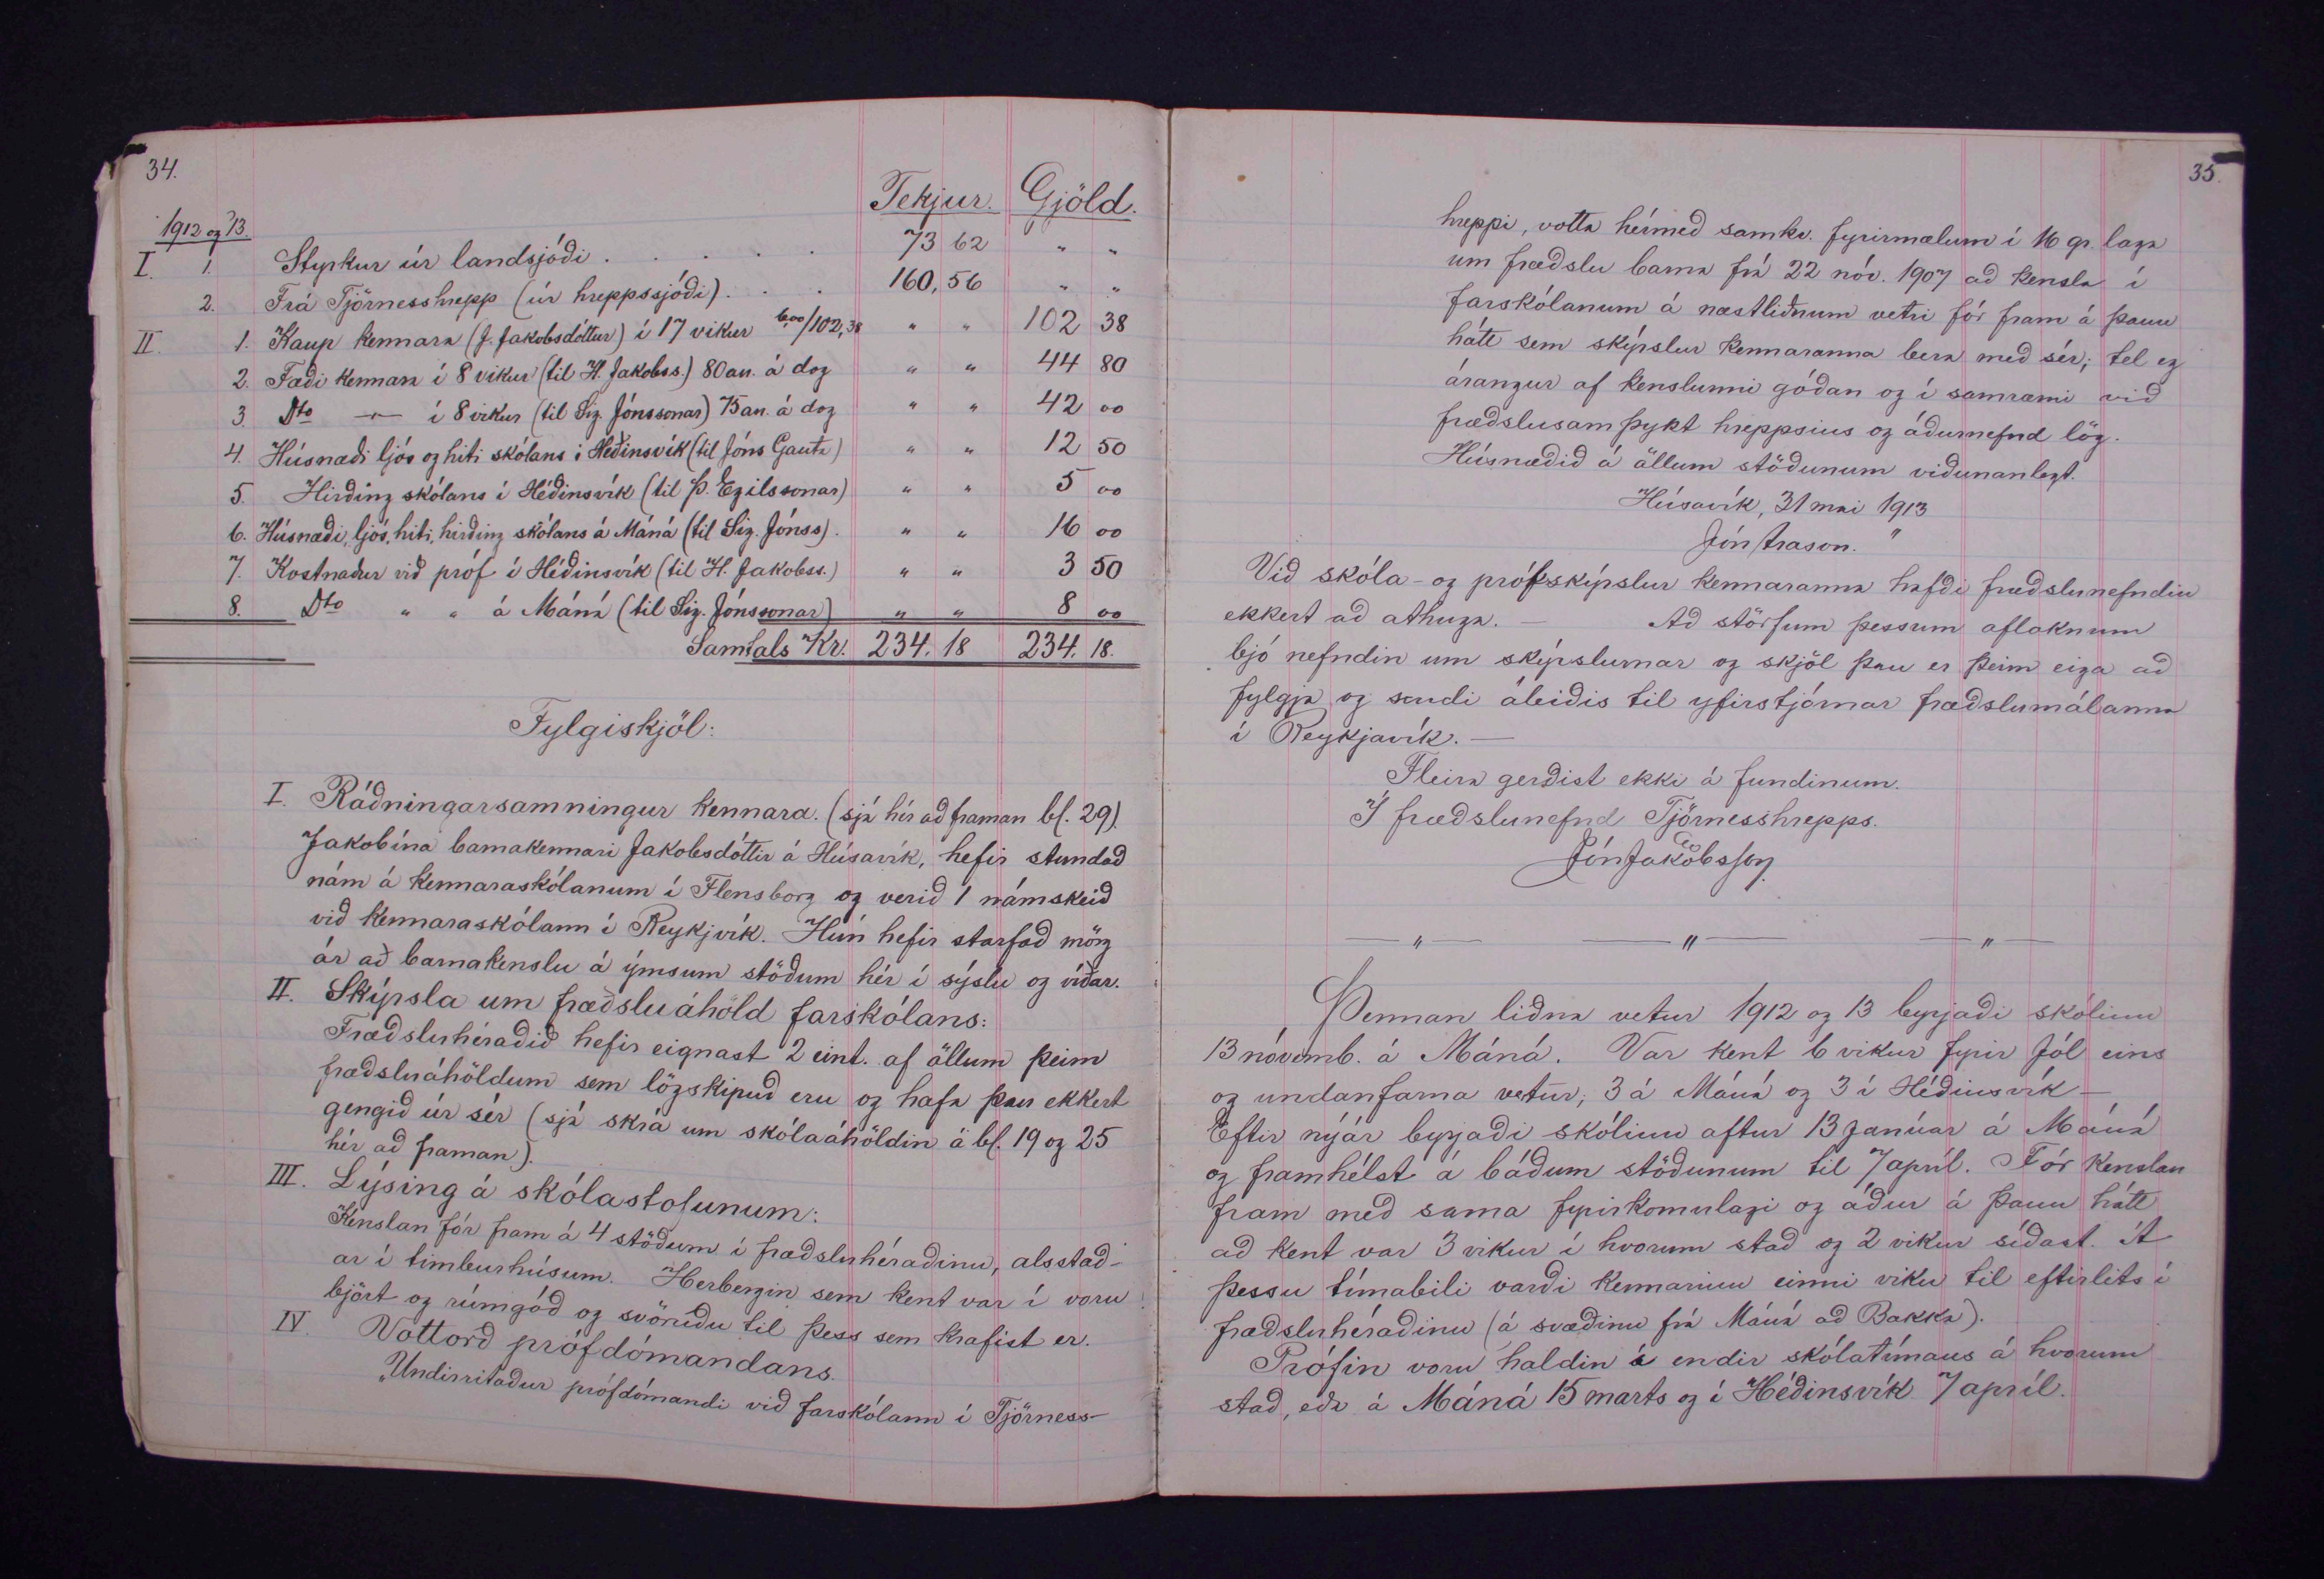 34.
Tekjur. Gjöld.
1912 og 13.
I. 1. Styrkur úr landsjóði . . . . . 73 62 " "
2. Frá Tjörnesshrepp (úr hreppssjóði) . . . 160,56 " "
II. 1. Kaup kennara (J. Jakobsdóttur) í 17 vikur 6,00/102,38 " " 102 38
2. Fæði kennara í 8 vikur (til H. Jakobss.) 80 au. á dag " " 44 80
3. Dto —"— í 8 vikur (til Sig. Jónssonar) 75 au. á dag " " 42 00
4. Húsnæði ljós og hiti skólans í Héðinsvík (til Jóns Gauta) " " 12 50
5. Hirðing skólans í Héðinsvík (til Þ. Egilssonar) " " 5 00
6. Húsnæði, ljós, hiti, hirðing skólans á Máná (til Sig. Jónss). " " 16 00
7. Kostnaður við próf í Héðinsvík (til H. Jakobss.) " " 3 50
8. Dto " " á Máná (til Sig. Jónssonar) " " 8 00
Samtals Kr. 234.18 234.18.
Fylgiskjöl:
I. Ráðningarsamningur kennara. (sjá hér að framan bl. 29).
Jakobína barnakennari Jakobsdóttir á Húsavík, hefir stundað
nám á kennaraskólanum í Flensborg og verið 1 námskeið
við kennaraskólann í Reykjvík. Hún hefir starfað mörg
ár að barnakenslu á ýmsum stöðum hér í sýslu og víðar.
II. Skýrsla um fræðsluáhöld farskólans:
Fræðsluhéraðið hefir eignast 2 eint. af öllum þeim
fræðsluáhöldum sem lögskipuð eru og hafa þau ekkert
gengið úr sér (sjá skrá um skólaáhöldin á bl. 19 og 25
hér að framan).
III. Lýsing á skólastofunum:
Kenslan fór fram á 4 stöðum í fræðsluhéraðinu, alsstað-
ar í timburhúsum. Herbergin sem kent var í voru
björt og rúmgóð og svöruðu til þess sem krafist er.
IV. Vottorð prófdómandans.
"Undirritaður prófdómandi við farskólann í Tjörness-
35.
hreppi, votta hérmeð samkv. fyrirmælum í 16 gr. laga
um fræðslu barna frá 22 nóv. 1907 að kensla í
farskólanum á næstliðnum vetri fór fram á þann
hátt sem skýrslur kennaranna bera með sér; tel eg
árangur af kenslunni góðan og í samræmi við
fræðslusamþykt hreppsins og áðurnefnd lög.
Húsnæðið á öllum stöðunum viðunanlegt.
Húsavík, 31 mai 1913
Jón Arason."
Við skóla- og prófskýrslur kennaranna hafði fræðslunefndin
ekkert að athuga. — Að störfum þessum afloknum
bjó nefndin um skýrslurnar og skjöl þau er þeim eiga að
fylgja og sendi áleiðis til yfirstjórnar fræðslumálanna
í Reykjavík. —
Fleira gerðist ekki á fundinum.
Í fræðslunefnd Tjörnesshrepps.
Jón Jakobsson
—"— —"— —"—
Þennan liðna vetur 1912 og 13 byrjaði skólinn
13 nóvemb. á Máná. Var kent 6 vikur fyrir Jól eins
og undanfarna vetur, 3 á Máná og 3 í Héðinsvík —
Eftir nýár byrjaði skólinn aftur 13 janúar á Máná
og framhélst á báðum stöðunum til 7 apríl. Fór kenslan
fram með sama fyrirkomulagi og áður á þann hátt
að kent var 3 vikur í hvorum stað og 2 vikur síðast. Á
þessu tímabili varði kennarinn einni viku til eftirlits í
fræðsluhéraðinu (á svæðinu frá Máná að Bakka).
Prófin voru haldin á endir skólatímans á hvorum
stað, eða á Máná 15 marts og í Héðinsvík 7 apríl.